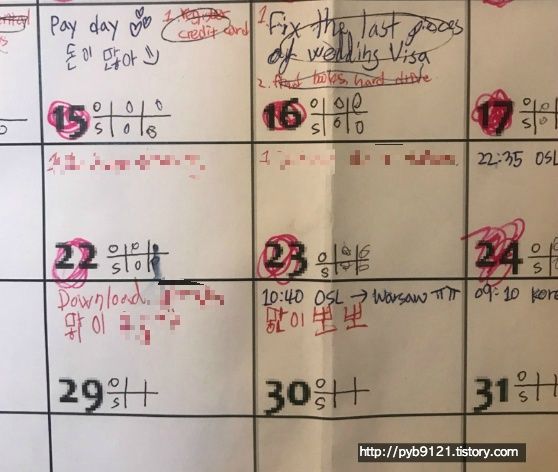 Pay day ♡♡
돈이 많아
1. register
credit card
1. Fix the last pieces
of wedding Visa
2. find books, hard drive
15 O O O
S O 8
16 O O O
S O O
17 O
S
1.
1.
22:35 OSL
22 O O
S O
23 O O O
S O O
24 O
S
Download
많이
10:40 OSL → Warsaw ㅠㅠ
많이 뽀뽀
09:10 Kore
29 O
S
30 O
S
31 O
S
http://pyb9121.tistory.com